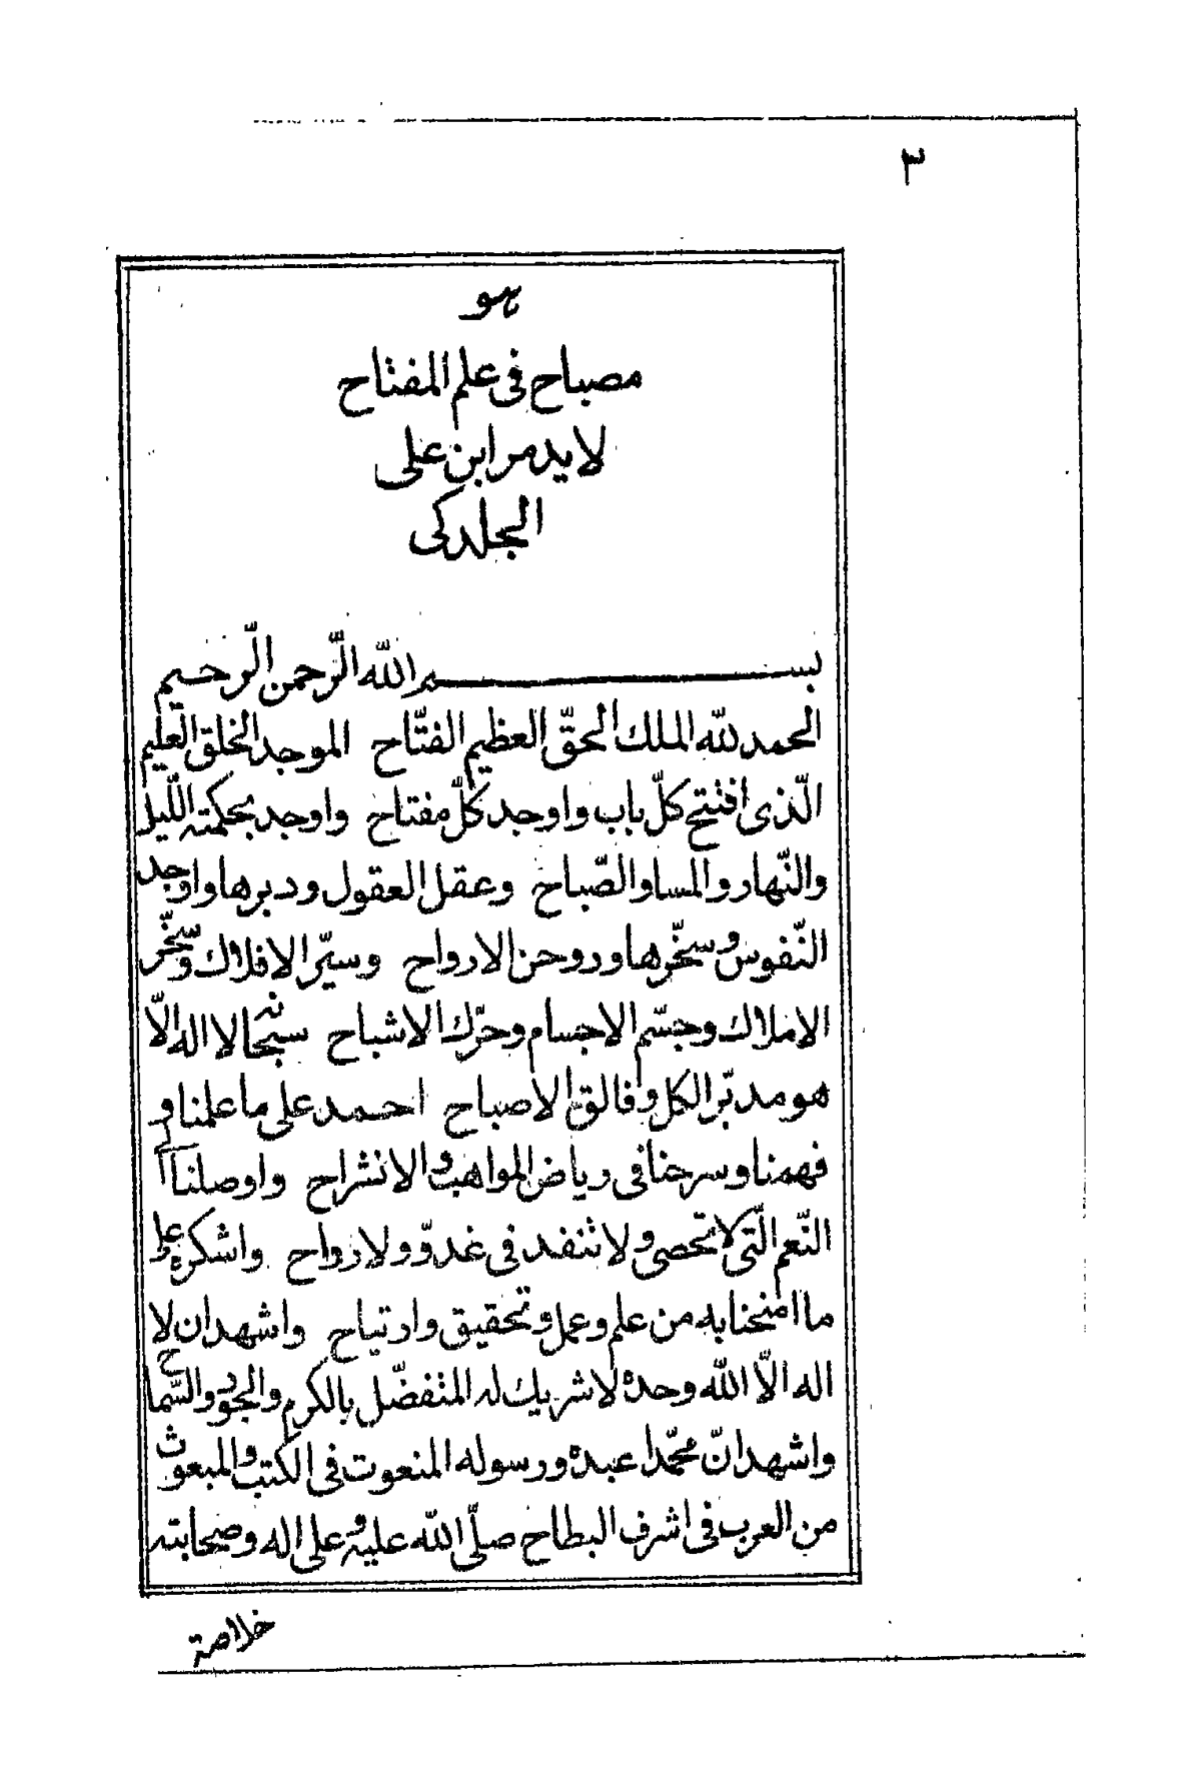 ٣
هو
مصباح فى علم المفتاح
لايدمر ابن على
الجلدكى
بسم الله الرّحمن الرّحيم
الحمد لله الملك الحقّ العظيم الفتّاح الموجد الخلق العليم
الّذى افتتح كلّ باب واوجد كلّ مفتاح واوجد بحكمته اللّيل
والنّهار والمسا والصّباح وعقل العقول ودبرها واوجد
النّفوس وسخّرها وروحن الارواح وسيّر الافلاك وسخّر
الاملاك وجسّم الاجسام وحرّك الاشباح سبحانه لا اله الّا
هو مدبّر الكل وفالق الاصباح احمد على ما علمنا و
فهمنا وسرحنا فى رياض المواهب والانشراح واوصلنا الى
النّعم الّتى لا تحصى ولا تنفد فى غدوّ ولا رواح واشكره على
ما امنحنا به من علم وعمل وتحقيق وارتياح واشهد ان لا
اله الّا الله وحده لا شريك له المتفضّل بالكرم والجود والسّماح
واشهد انّ محمّدا عبده ورسوله المنعوت فى الكتب والمبعوث
من العرب فى اشرف البطاح صلّى الله عليه وعلى اله وصحابته
خلاصة